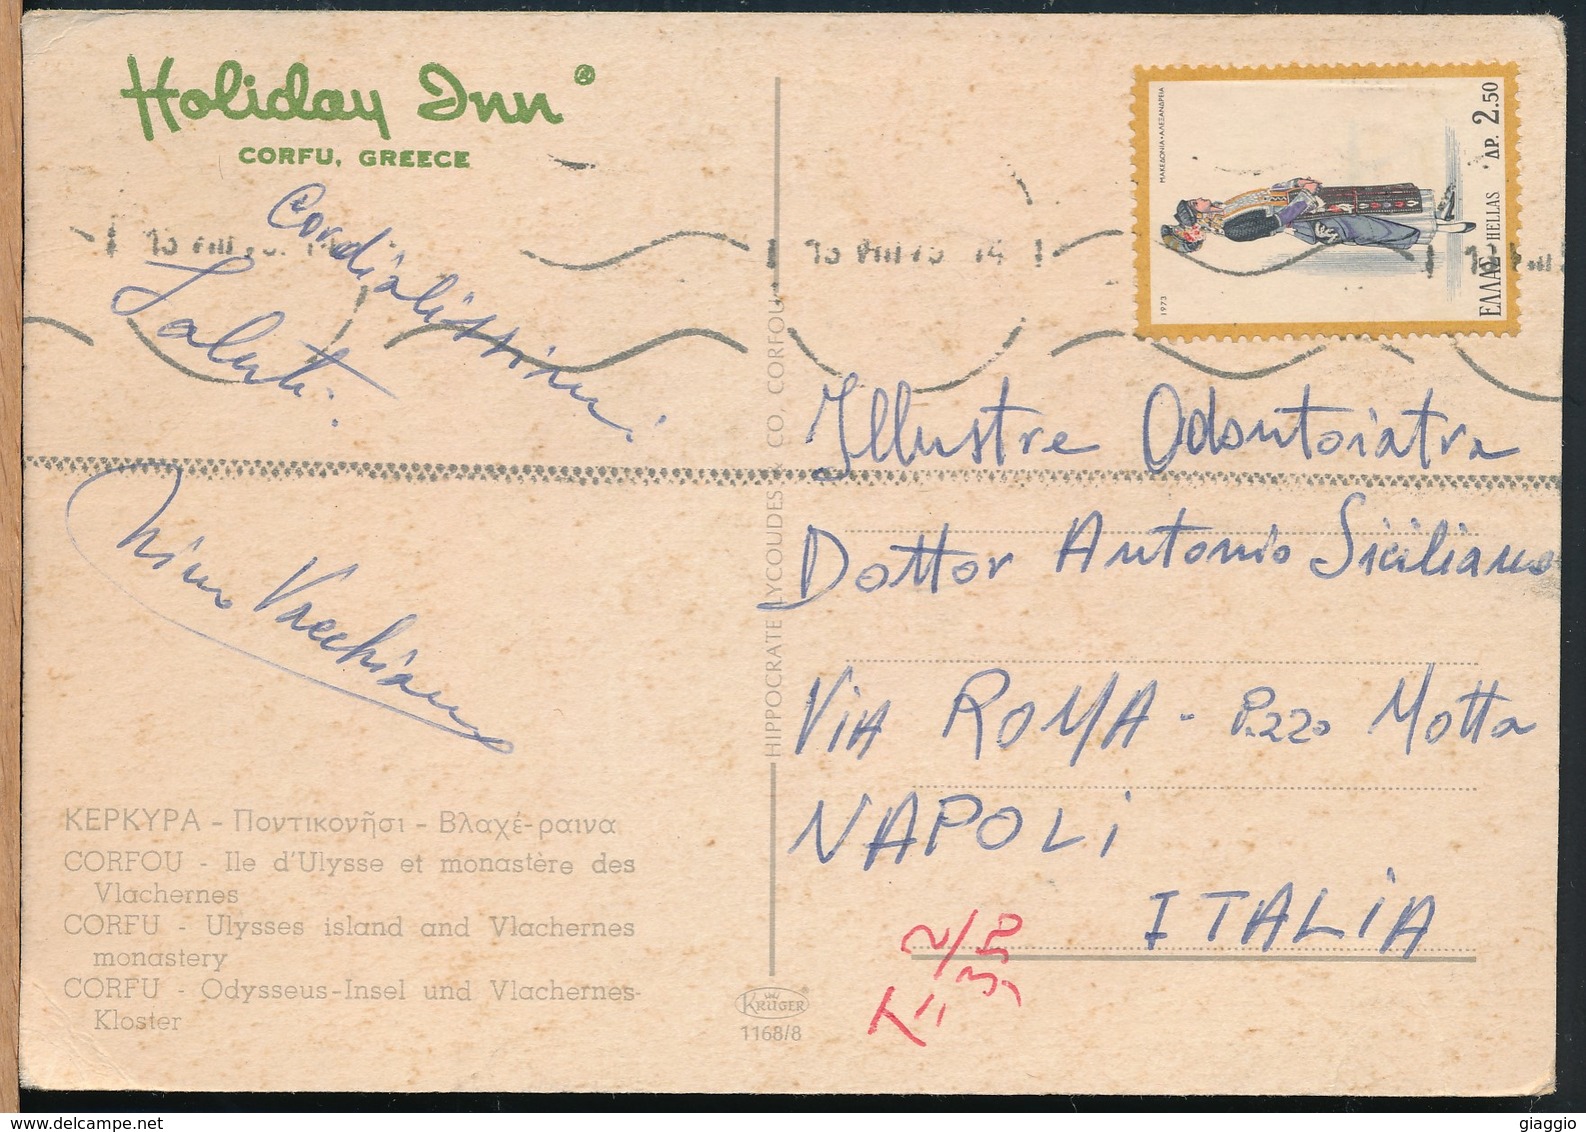 Holiday Inn®
CORFU, GREECE
Cordialissimi
Saluti.
Nino Vecchiano
ΚΕΡΚΥΡΑ - Ποντικονῆσι - Βλαχέ-ραινα
CORFOU - Ile d'Ulysse et monastère des
Vlachernes
CORFU - Ulysses island and Vlachernes
monastery
CORFU - Odysseus-Insel und Vlachernes-
Kloster
HIPPOCRATE LYCOUDES & CO, CORFOU
KRÜGER
1168/8
ΜΑΚΕΔΟΝΙΑ·ΑΛΕΞΑΝΔΡΕΙΑ
1973
ΕΛΛΑΣ HELLAS ΔΡ. 2.50
Illustre Odontoiatra
Dottor Antonio Siciliano
ViA ROMA - P.zzo Motta
NAPOLi
ITALiA
giaggio